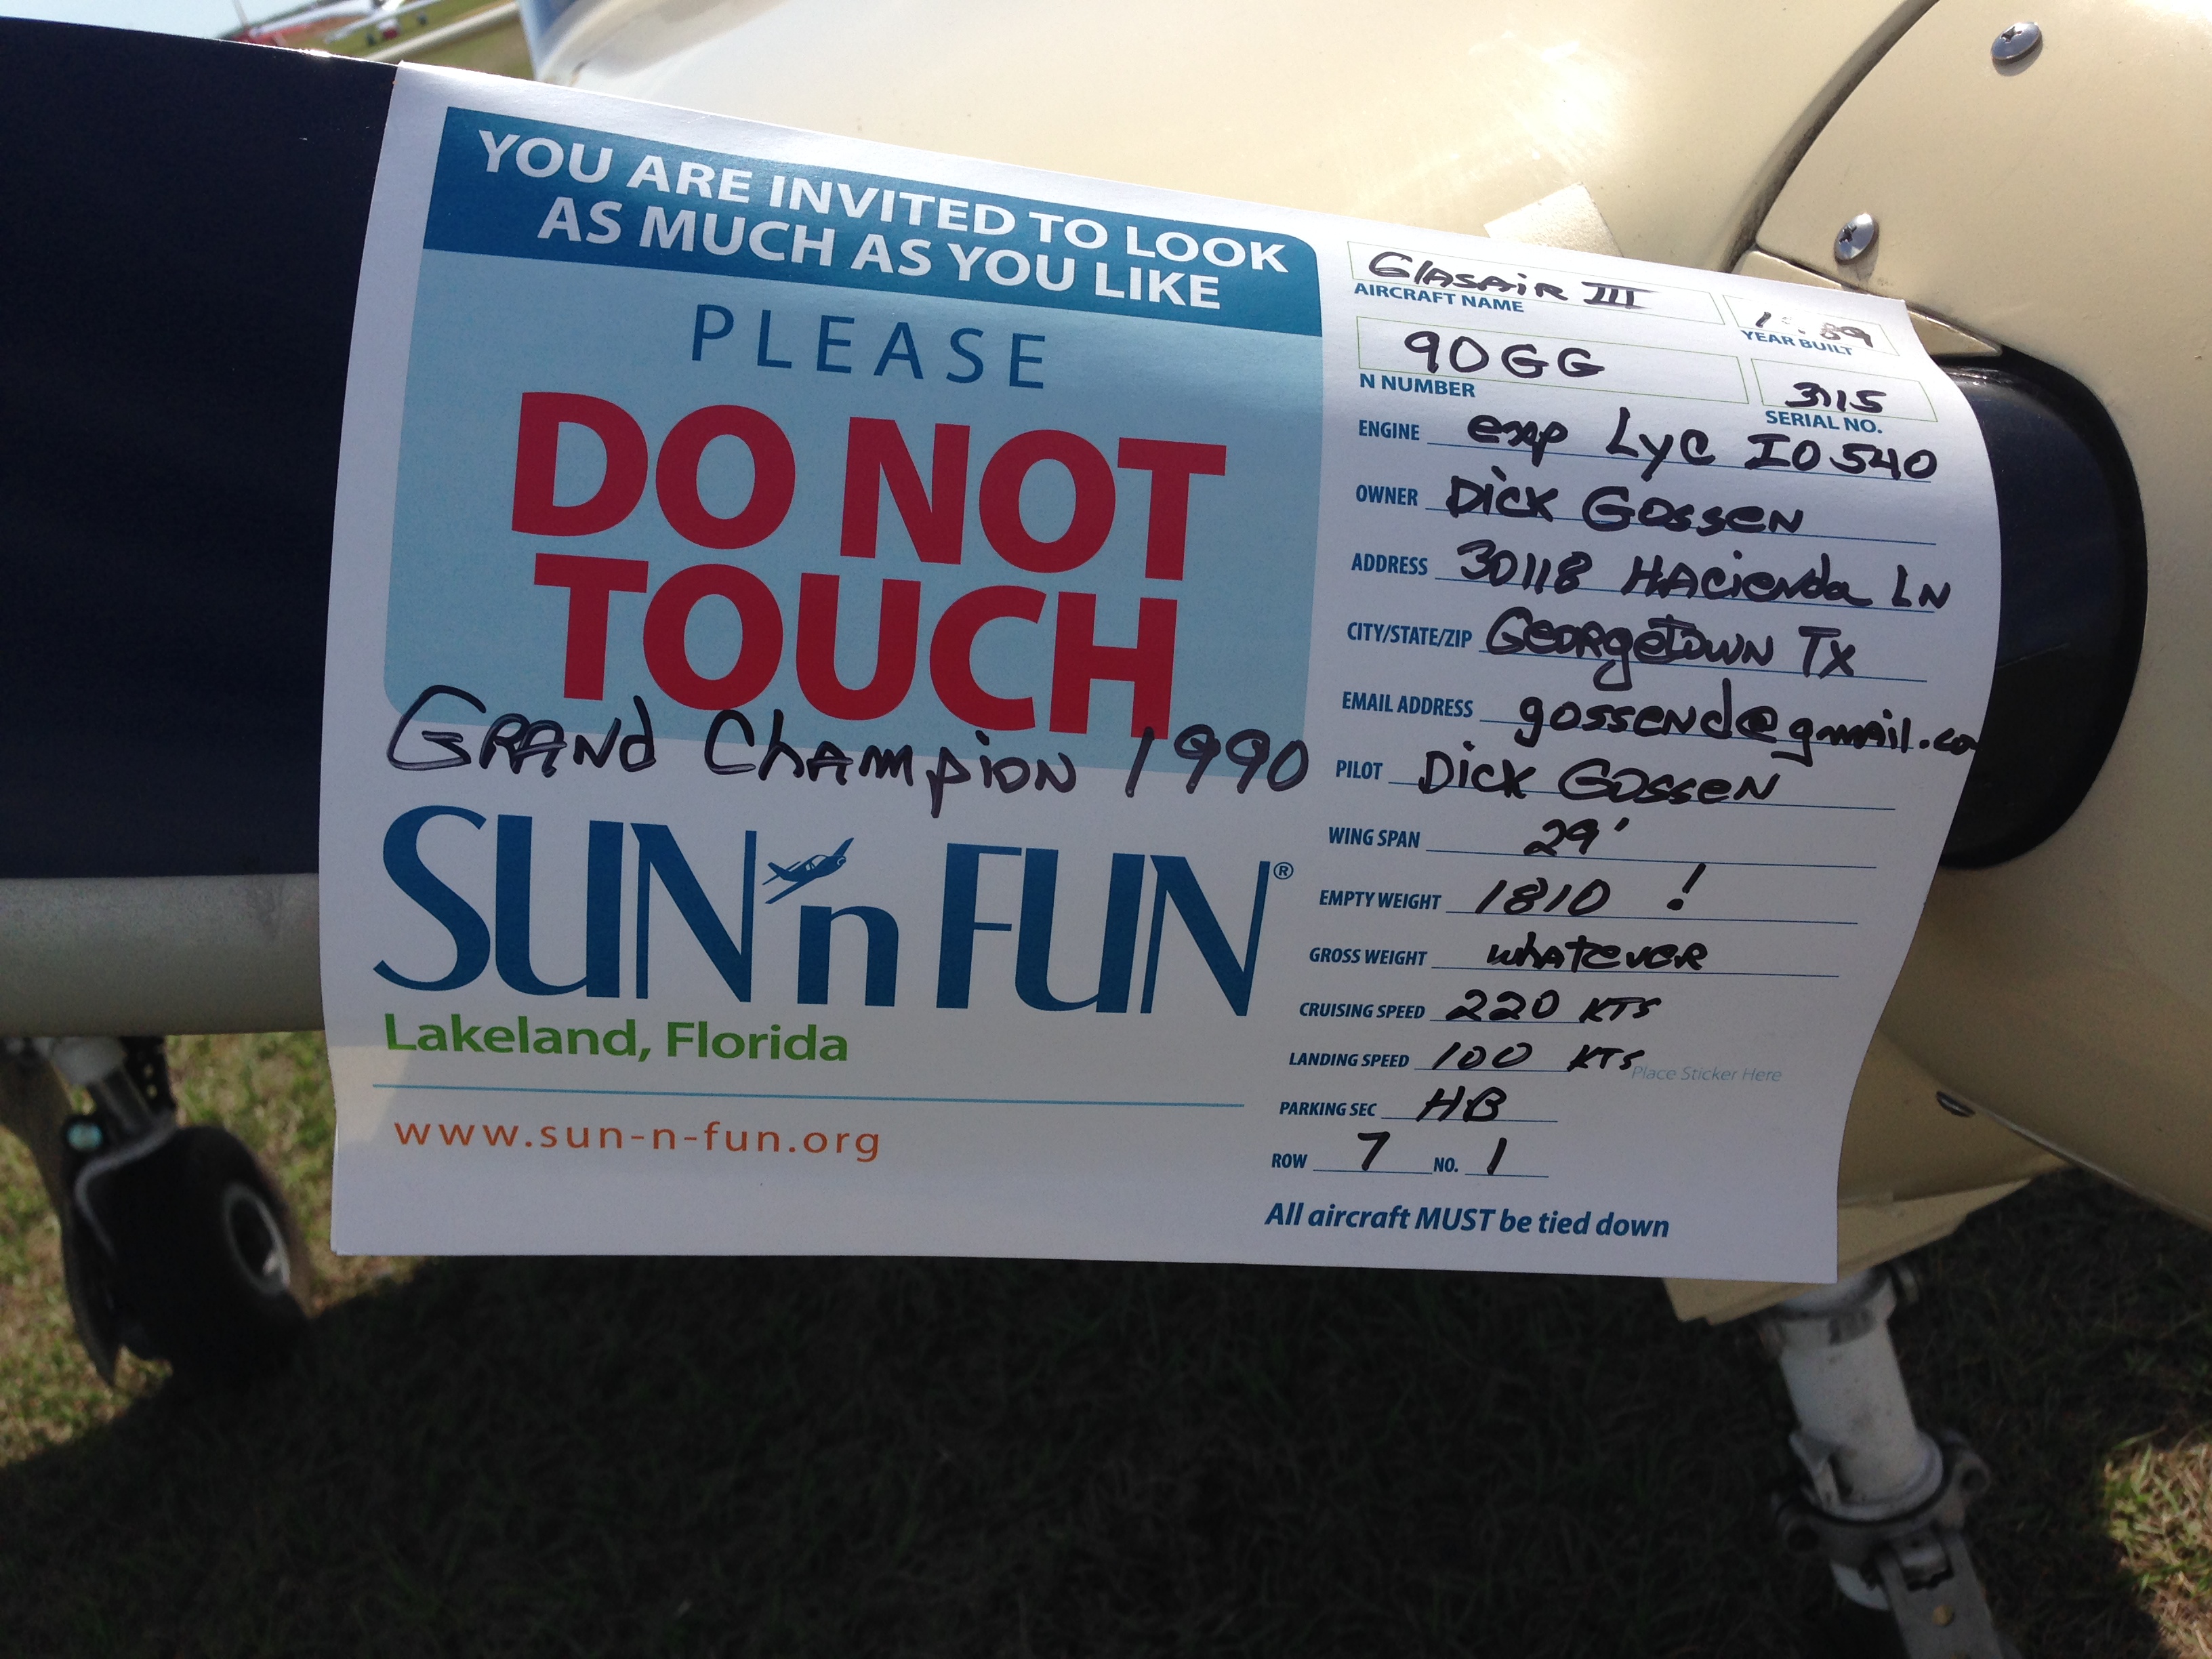 YOU ARE INVITED TO LOOK
AS MUCH AS YOU LIKE
PLEASE
DO NOT
TOUCH
GRANd ChAmpioN 1990
SUN'n FUN®
Lakeland, Florida
www.sun-n-fun.org
GlASAiR III
AIRCRAFT NAME
YEAR BUILT
90GG
N NUMBER
3115
SERIAL NO.
ENGINE exp Lyc IO 540
OWNER Dick GosseN
ADDRESS 30118 HAcienda LN
CITY/STATE/ZIP GeorgetowN TX
EMAIL ADDRESS gossend@gmail.co
PILOT Dick GosseN
WING SPAN 29'
EMPTY WEIGHT 1810 !
GROSS WEIGHT whatever
CRUISING SPEED 220 KTS
LANDING SPEED 100 KTS
Place Sticker Here
PARKING SEC HB
ROW 7 NO. 1
All aircraft MUST be tied down